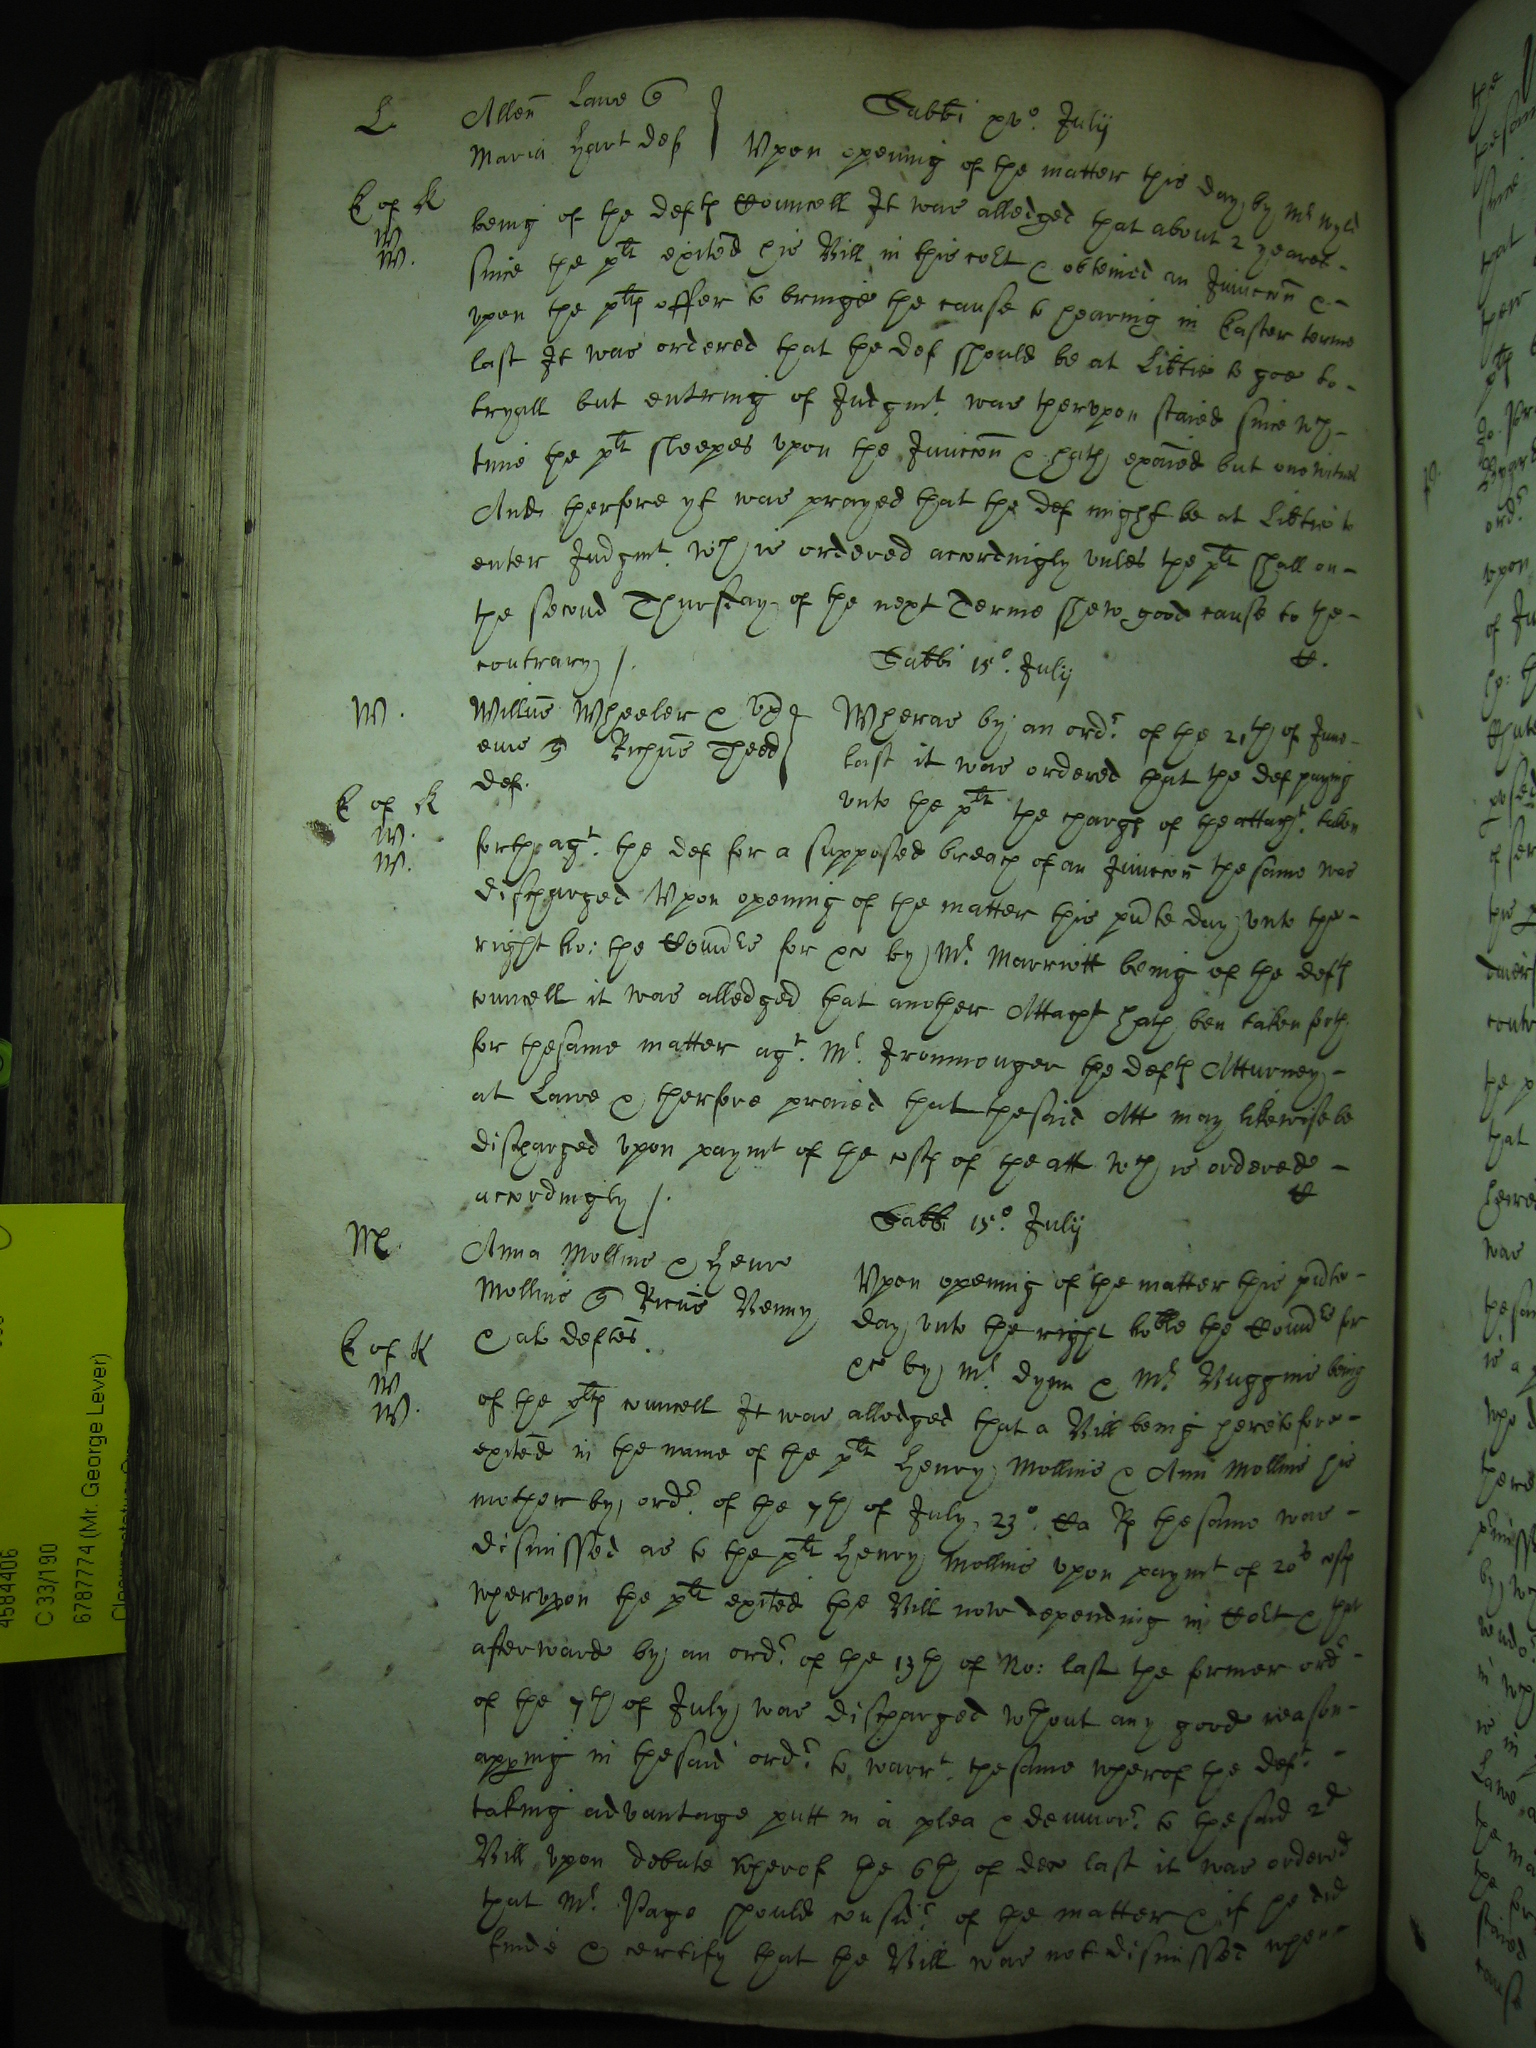 L
Allen Lawe
Maria Hart def
Sabbi xvo. July
Vpon opening of the matter this day by Mr
K of R
W.
being of the defts Councell It was alledged that about 2 yeares
since the plt exited his Bill in this cort & obteined an Iniuccon &
vpon the plts offer to bringe the cause to hearing in Easter terme
last It was ordered that the def should be at Libtie to goe to
tryall but entring of Judgmt. was thervpon staied since wch
time the plt sleepes vpon the Iniuccon & hath exaied but one witnes
And therfore yt was prayed that the def might be at Libtie to
enter Judgmt. wch is ordered accordingly vnles the plt shall on
the second Thursday of the next Terme shew good cause to the
contrary /.
Sabbi 15o. July
W.
Willus Wheeler & vid
Richus Theed
def.
Wheras by an ordr. of the 21th of June
last it was ordered that the def paying
vnto the plt the charge of the attacht. taken
K of R
W.
W.
forth agt. the def for a supposed breach of an Iniuccon the same was
discharged Vpon opening of the matter this pnte day vnto the
right ho: the for &c by Mr. Marriott being of the defts
councell it was alledged that another Attacht hath ben taken forth
for thesame matter agt. Mr. Ironmonger the defts Atturney
at Lawe & therfore praied that thesaid Att may likewise be
discharged vpon paymt of the costs of the att wch is ordered
accordingly /.
Sabbi 15o. July
M
Anna Mollins & Henr
Mollins Ricus Venny
& als deftes.
Vpon opening of the matter this pnte
day vnto the right hoble the for
&c by Mr. Dynn & Mr. Nuggins being
K of R
W
W.
of the plts councell It was alledged that a Bill being heretofore
exited in the name of the plt Henry Mollins & Ann Mollins his
mother by ordr. of the 7th of July 23o. Ca Rs thesame was
dismissed as to the plt Henry Mollins vpon paymt of 20s costs
whervpon the plt exited the Bill now depending in Cort & that
afterwards by an ordr. of the 13th of No: last the former ordr
of the 7th of July was discharged wthout any good reason
appering in thesaid ordr. to warrt. thesame wherof the deft.
taking advantage putt in a plea & demurr. to thesaid 2d
Bill vpon debate wherof the 6th of dec last it was ordered
that Mr. Page should considr. of the matter & if he did
finde & certify that the Bill was not dismissed vpon
4584406
C 33/190
6787774 (Mr. George Lever)